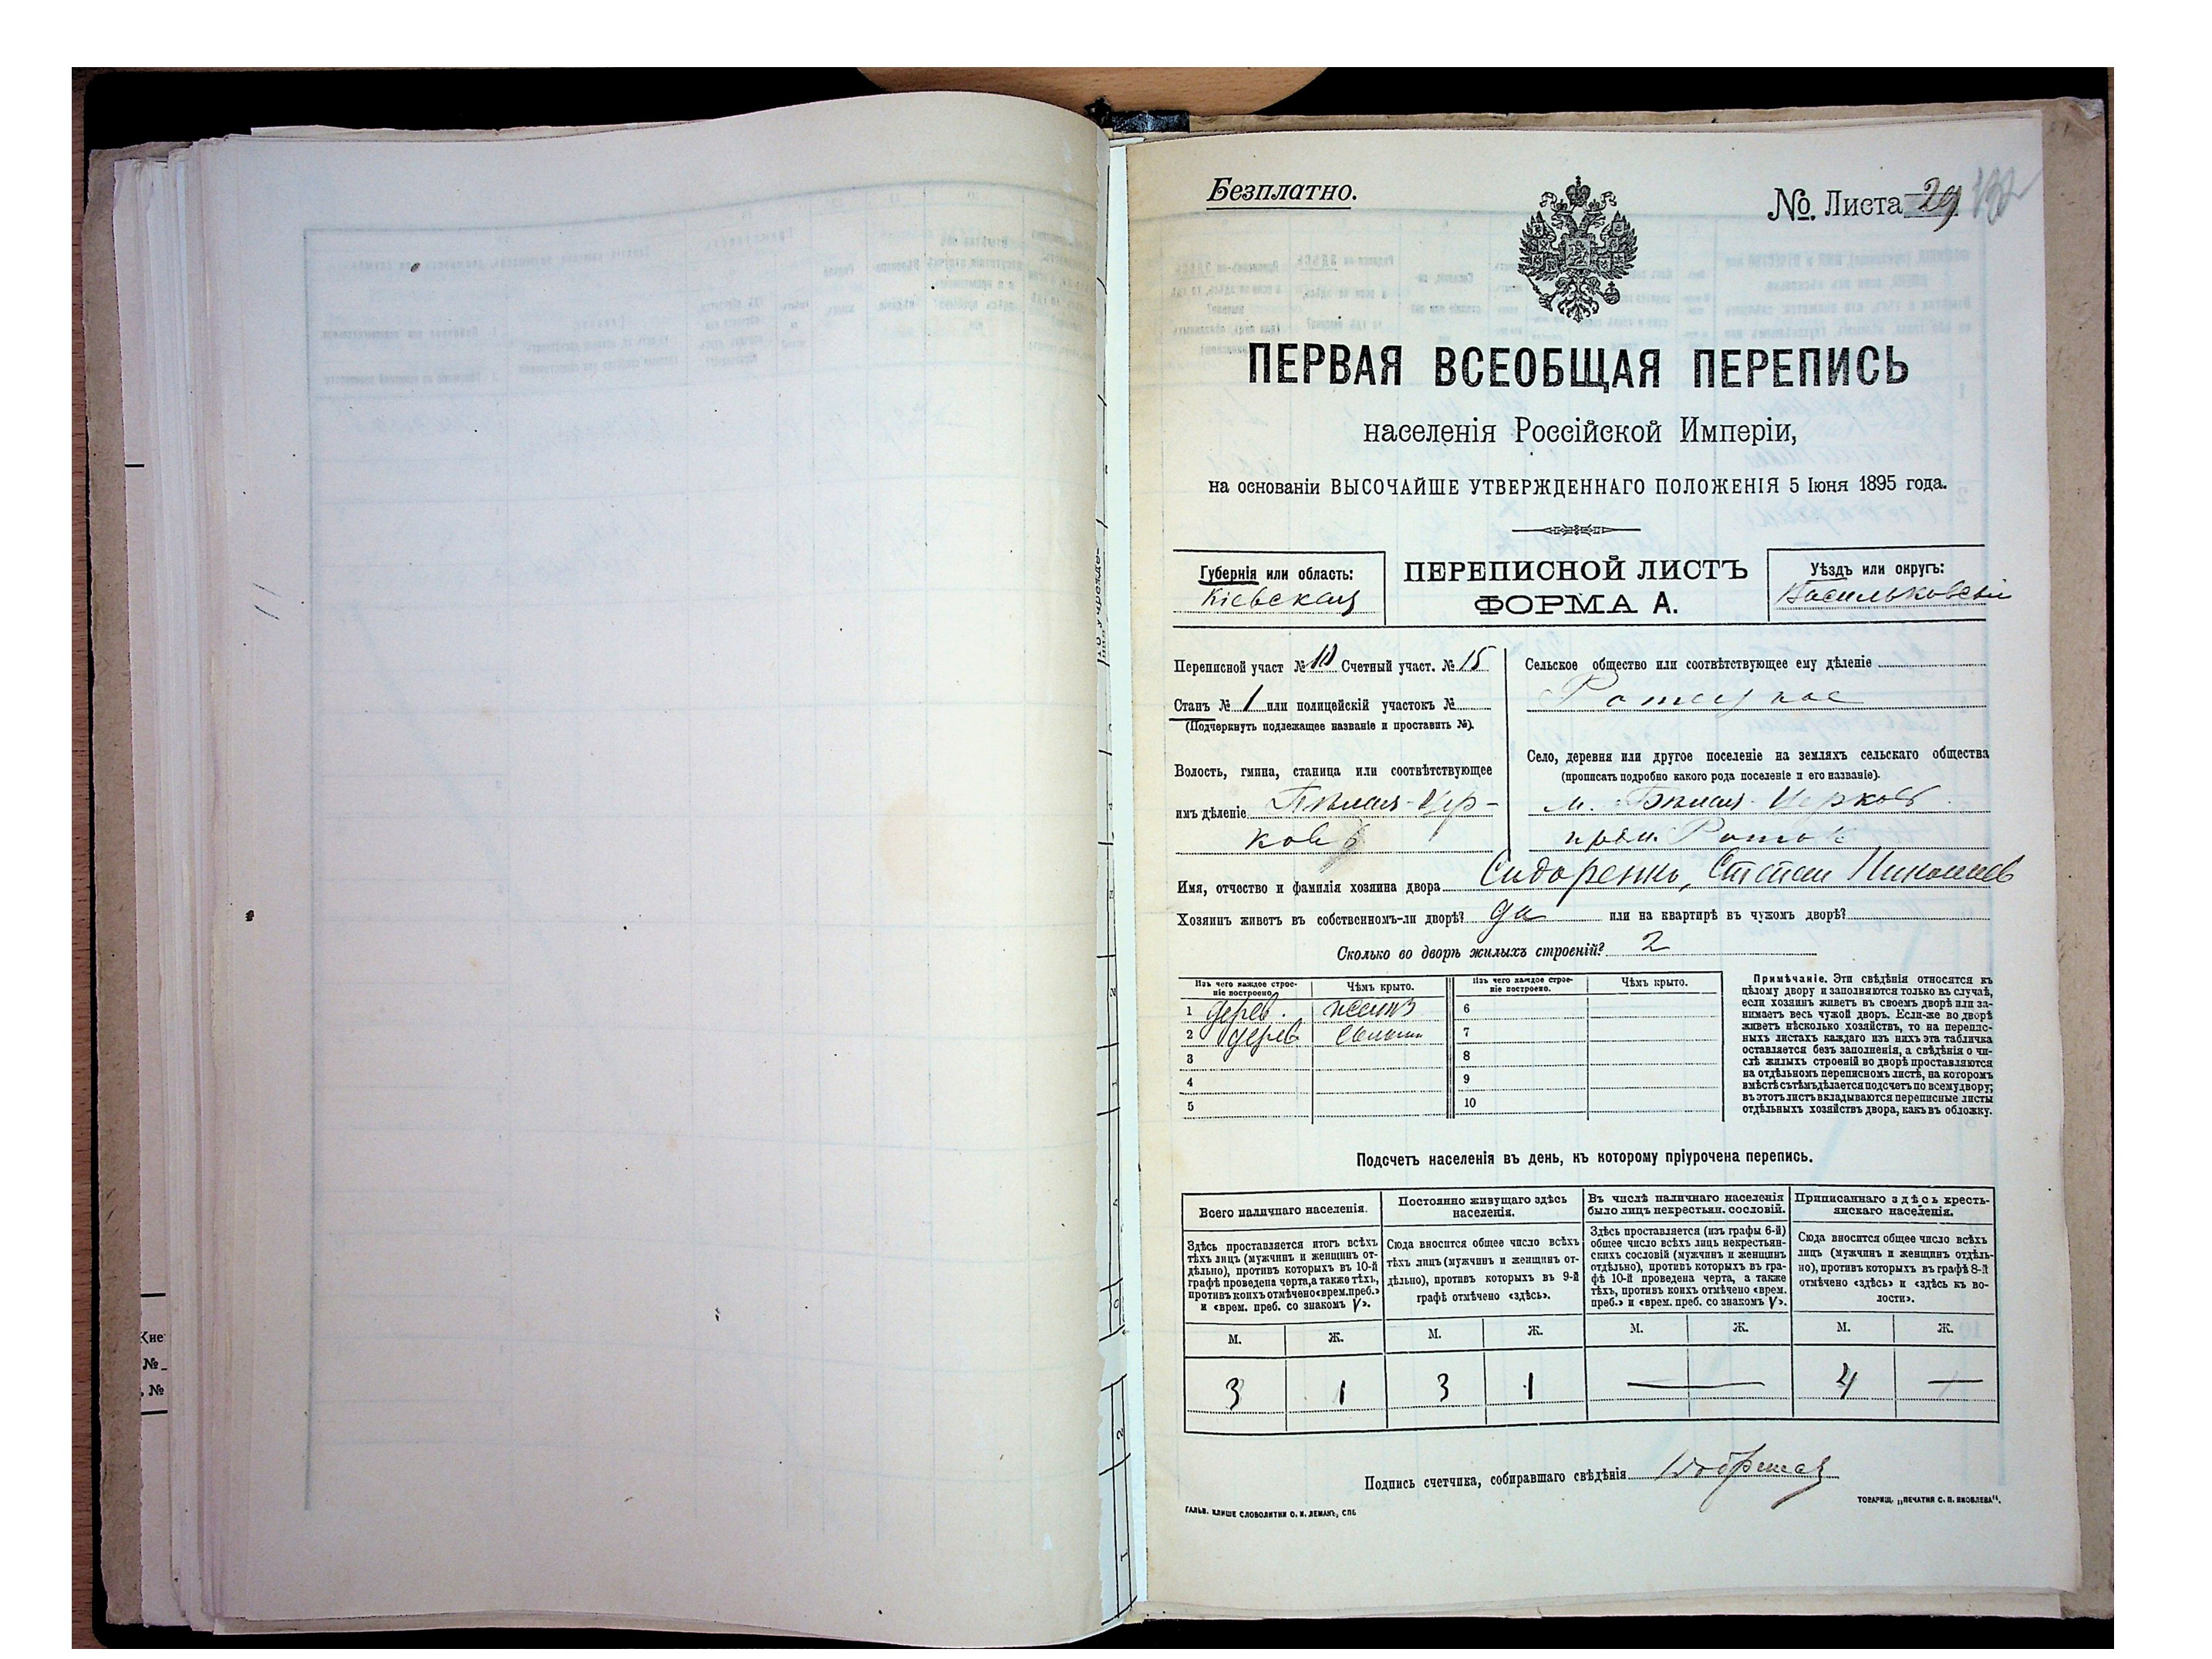 Безплатно.
№. Листа 29
ПЕРВАЯ ВСЕОБЩАЯ ПЕРЕПИСЬ
населенія Россійской Имперіи,
на основаніи ВЫСОЧАЙШЕ УТВЕРЖДЕННАГО ПОЛОЖЕНІЯ 5 Іюня 1895 года.
Губернія или область:
Кіевская
ПЕРЕПИСНОЙ ЛИСТЪ
ФОРМА А.
Уѣздъ или округъ:
Васильковскій
Переписной участ № Счетный участ. № 15
Станъ № 1 или полицейскій участокъ №
(Подчеркнуть подлежащее названіе и проставить №).
Волость, гмина, станица или соотвѣтствующее
имъ дѣленіе Бѣлая-Цер-
ковь
Сельское общество или соотвѣтствующее ему дѣленіе
Село, деревня или другое поселеніе на земляхъ сельскаго общества
(прописать подробно какого рода поселеніе и его названіе).
м. Бѣлая-Церковь
Ротокъ
Имя, отчество и фамилія хозяина двора Сидоренко, Степан
Хозяинъ живетъ въ собственномъ-ли дворѣ? да или на квартирѣ въ чужомъ дворѣ?
Сколько во дворѣ жилыхъ строеній? 2
Изъ чего каждое строе-
ніе построено.
Чѣмъ крыто.
Изъ чего каждое строе-
ніе построено.
Чѣмъ крыто.
1 дерев. 6
2 дерев. 7
3 8
4 9
5 10
Примѣчаніе. Эти свѣдѣнія относятся къ
цѣлому двору и заполняются только въ случаѣ,
если хозяинъ живетъ въ своемъ дворѣ или за-
нимаетъ весь чужой дворъ. Если-же во дворѣ
живетъ нѣсколько хозяйствъ, то на перепис-
ныхъ листахъ каждаго изъ нихъ эта табличка
оставляется безъ заполненія, а свѣдѣнія о чи-
слѣ жилыхъ строеній во дворѣ проставляются
на отдѣльномъ переписномъ листѣ, на которомъ
вмѣстѣ съ тѣмъ дѣлается подсчетъ по всему двору;
въ этотъ листъ вкладываются переписные листы
отдѣльныхъ хозяйствъ двора, какъ въ обложку.
Подсчетъ населенія въ день, къ которому пріурочена перепись.
Всего наличнаго населенія.
Постоянно живущаго здѣсь
населенія.
Въ числѣ наличнаго населенія
было лицъ некрестьян. сословій.
Приписаннаго здѣсь кресть-
янскаго населенія.
Здѣсь проставляется итогъ всѣхъ
тѣхъ лицъ (мужчинъ и женщинъ от-
дѣльно), противъ которыхъ въ 10-й
графѣ проведена черта, а также тѣхъ,
противъ коихъ отмѣчено «врем. преб.»
и «врем. преб. со знакомъ V».
Сюда вносится общее число всѣхъ
тѣхъ лицъ (мужчинъ и женщинъ от-
дѣльно), противъ которыхъ въ 9-й
графѣ отмѣчено «здѣсь».
Здѣсь проставляется (изъ графы 6-й)
общее число всѣхъ лицъ некрестьян-
скихъ сословій (мужчинъ и женщинъ
отдѣльно), противъ которыхъ въ гра-
фѣ 10-й проведена черта, а также
тѣхъ, противъ коихъ отмѣчено «врем.
преб.» и «врем. преб. со знакомъ V».
Сюда вносится общее число всѣхъ
лицъ (мужчинъ и женщинъ отдѣль-
но), противъ которыхъ въ графѣ 8-й
отмѣчено «здѣсь» и «здѣсь къ во-
лости».
М. Ж. М. Ж. М. Ж. М. Ж.
3 1 3 1 — 4 —
Подпись счетчика, собиравшаго свѣдѣнія
ГАЛЬВ. КЛИШЕ СЛОВОЛИТНИ О. И. ЛЕМАНЪ, СПБ
ТОВАРИЩ. „ПЕЧАТНЯ С. П. ЯКОВЛЕВА".